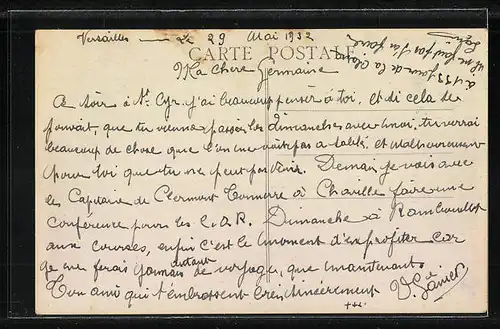 Versailles — Le 29 Mai 1932
CARTE POSTALE
Ma Chère Germaine
A voir à St. Cyr. j'ai beaucoup penser à toi. et si cela se
pouvait, que tu vienne passée les dimanches avec moi. tu verrai
beaucoup de chose que l'on ne voit pas a et malheureusement
pour toi que tu ne peut pas voir. Demain je vais avec
les Capitaine de Clermont Tonnerre à Chaville faire une
conférence pour les Dimanche à Rambouillet
aux courses, enfin c'est le moment d'en profiter car
je ne ferais jamais autant de voyages, que maintenant
Ton ami qui t'embrassent bien sincèrement